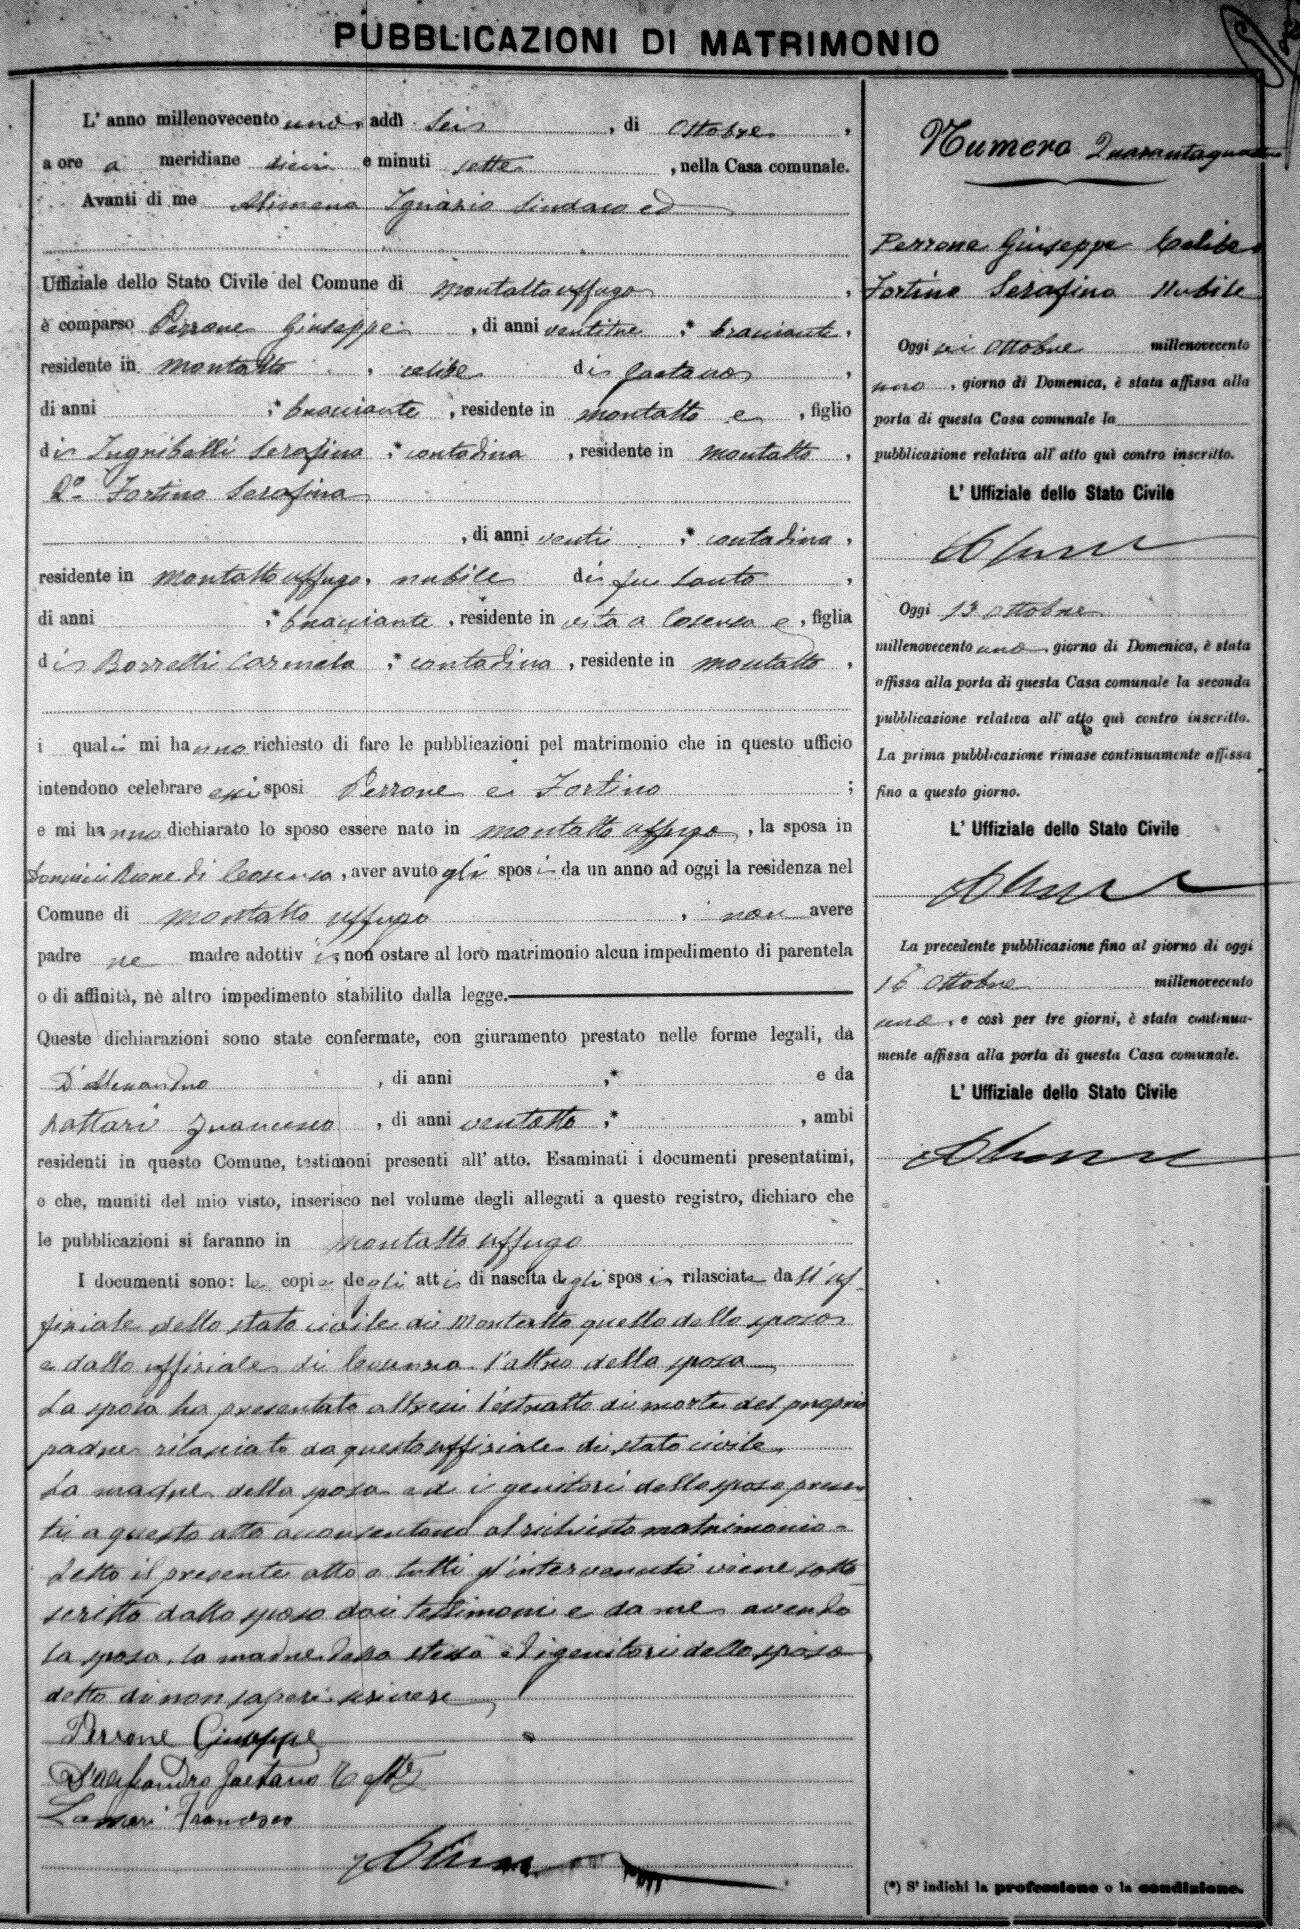 PUBBLICAZIONI DI MATRIMONIO
L' anno millenovecento uno, addì Sei, di Ottobre,
a ore a meridiane dieci e minuti sette, nella Casa comunale.
Avanti di me Alimena Ignazio Sindaco ed
Uffiziale dello Stato Civile del Comune di Montalto Uffugo,
è comparso Perrone Giuseppe, di anni ventitre, * bracciante,
residente in Montalto, celibe di Gaetano,
di anni ;* bracciante, residente in Montalto e, figlio
di Serafina ;* contadina, residente in Montalto,
2° Fortino Serafina
, di anni venti ;* contadina,
residente in Montalto Uffugo, nubile di fu Santo,
di anni ;* bracciante, residente in vita a Cosenza e, figlia
di Borrelli Carmela ;* contadina, residente in Montalto,
i quali mi hanno richiesto di fare le pubblicazioni pel matrimonio che in questo ufficio
intendono celebrare essi sposi Perrone e Fortino ;
e mi hanno dichiarato lo sposo essere nato in Montalto Uffugo, la sposa in
di Cosenza, aver avuto gli sposi da un anno ad oggi la residenza nel
Comune di Montalto Uffugo, non avere
padre ne madre adottivi, non ostare al loro matrimonio alcun impedimento di parentela
o di affinità, nè altro impedimento stabilito dalla legge.
Queste dichiarazioni sono state confermate, con giuramento prestato nelle forme legali, da
D'Alessandro, di anni ,* e da
Lattari Francesco, di anni ventotto ;* , ambi
residenti in questo Comune, testimoni presenti all' atto. Esaminati i documenti presentatimi,
e che, muniti del mio visto, inserisco nel volume degli allegati a questo registro, dichiaro che
le pubblicazioni si faranno in Montalto Uffugo
I documenti sono: le copie degli atti di nascita degli sposi rilasciate dall'uf-
fiziale dello stato civile di Montalto quello dello sposo
e dallo uffiziale di Cosenza l'altro della sposa
La sposa ha presentato altresì l'estratto di morte del proprio
padre rilasciato da questo uffiziale di stato civile.
La madre della sposa ed i genitori dello sposo presen-
ti a questo atto acconsentono al richiesto matrimonio -
Letto il presente atto a tutti gl'intervenuti viene sotto-
scritto dallo sposo dai testimoni e da me avendo
la sposa, la madre della stessa ed i genitori dello sposo
detto di non sapere scrivere
Perrone Giuseppe
D'Alessandro Gaetano Teste
Lattari Francesco
Numero Quarantaquattro
Perrone Giuseppe Celibe
Fortino Serafina Nubile
Oggi sei Ottobre millenovecento
uno, giorno di Domenica, è stata affissa alla
porta di questa Casa comunale la
pubblicazione relativa all' atto quì contro inscritto.
L' Uffiziale dello Stato Civile
Oggi 13 Ottobre
millenovecento uno, giorno di Domenica, è stata
affissa alla porta di questa Casa comunale la seconda
pubblicazione relativa all' atto quì contro inscritto.
La prima pubblicazione rimase continuamente affissa
fino a questo giorno.
L' Uffiziale dello Stato Civile
La precedente pubblicazione fino al giorno di oggi
16 Ottobre millenovecento
uno, e così per tre giorni, è stata continua-
mente affissa alla porta di questa Casa comunale.
L' Uffiziale dello Stato Civile
(*) S' indichi la professione o la condizione.